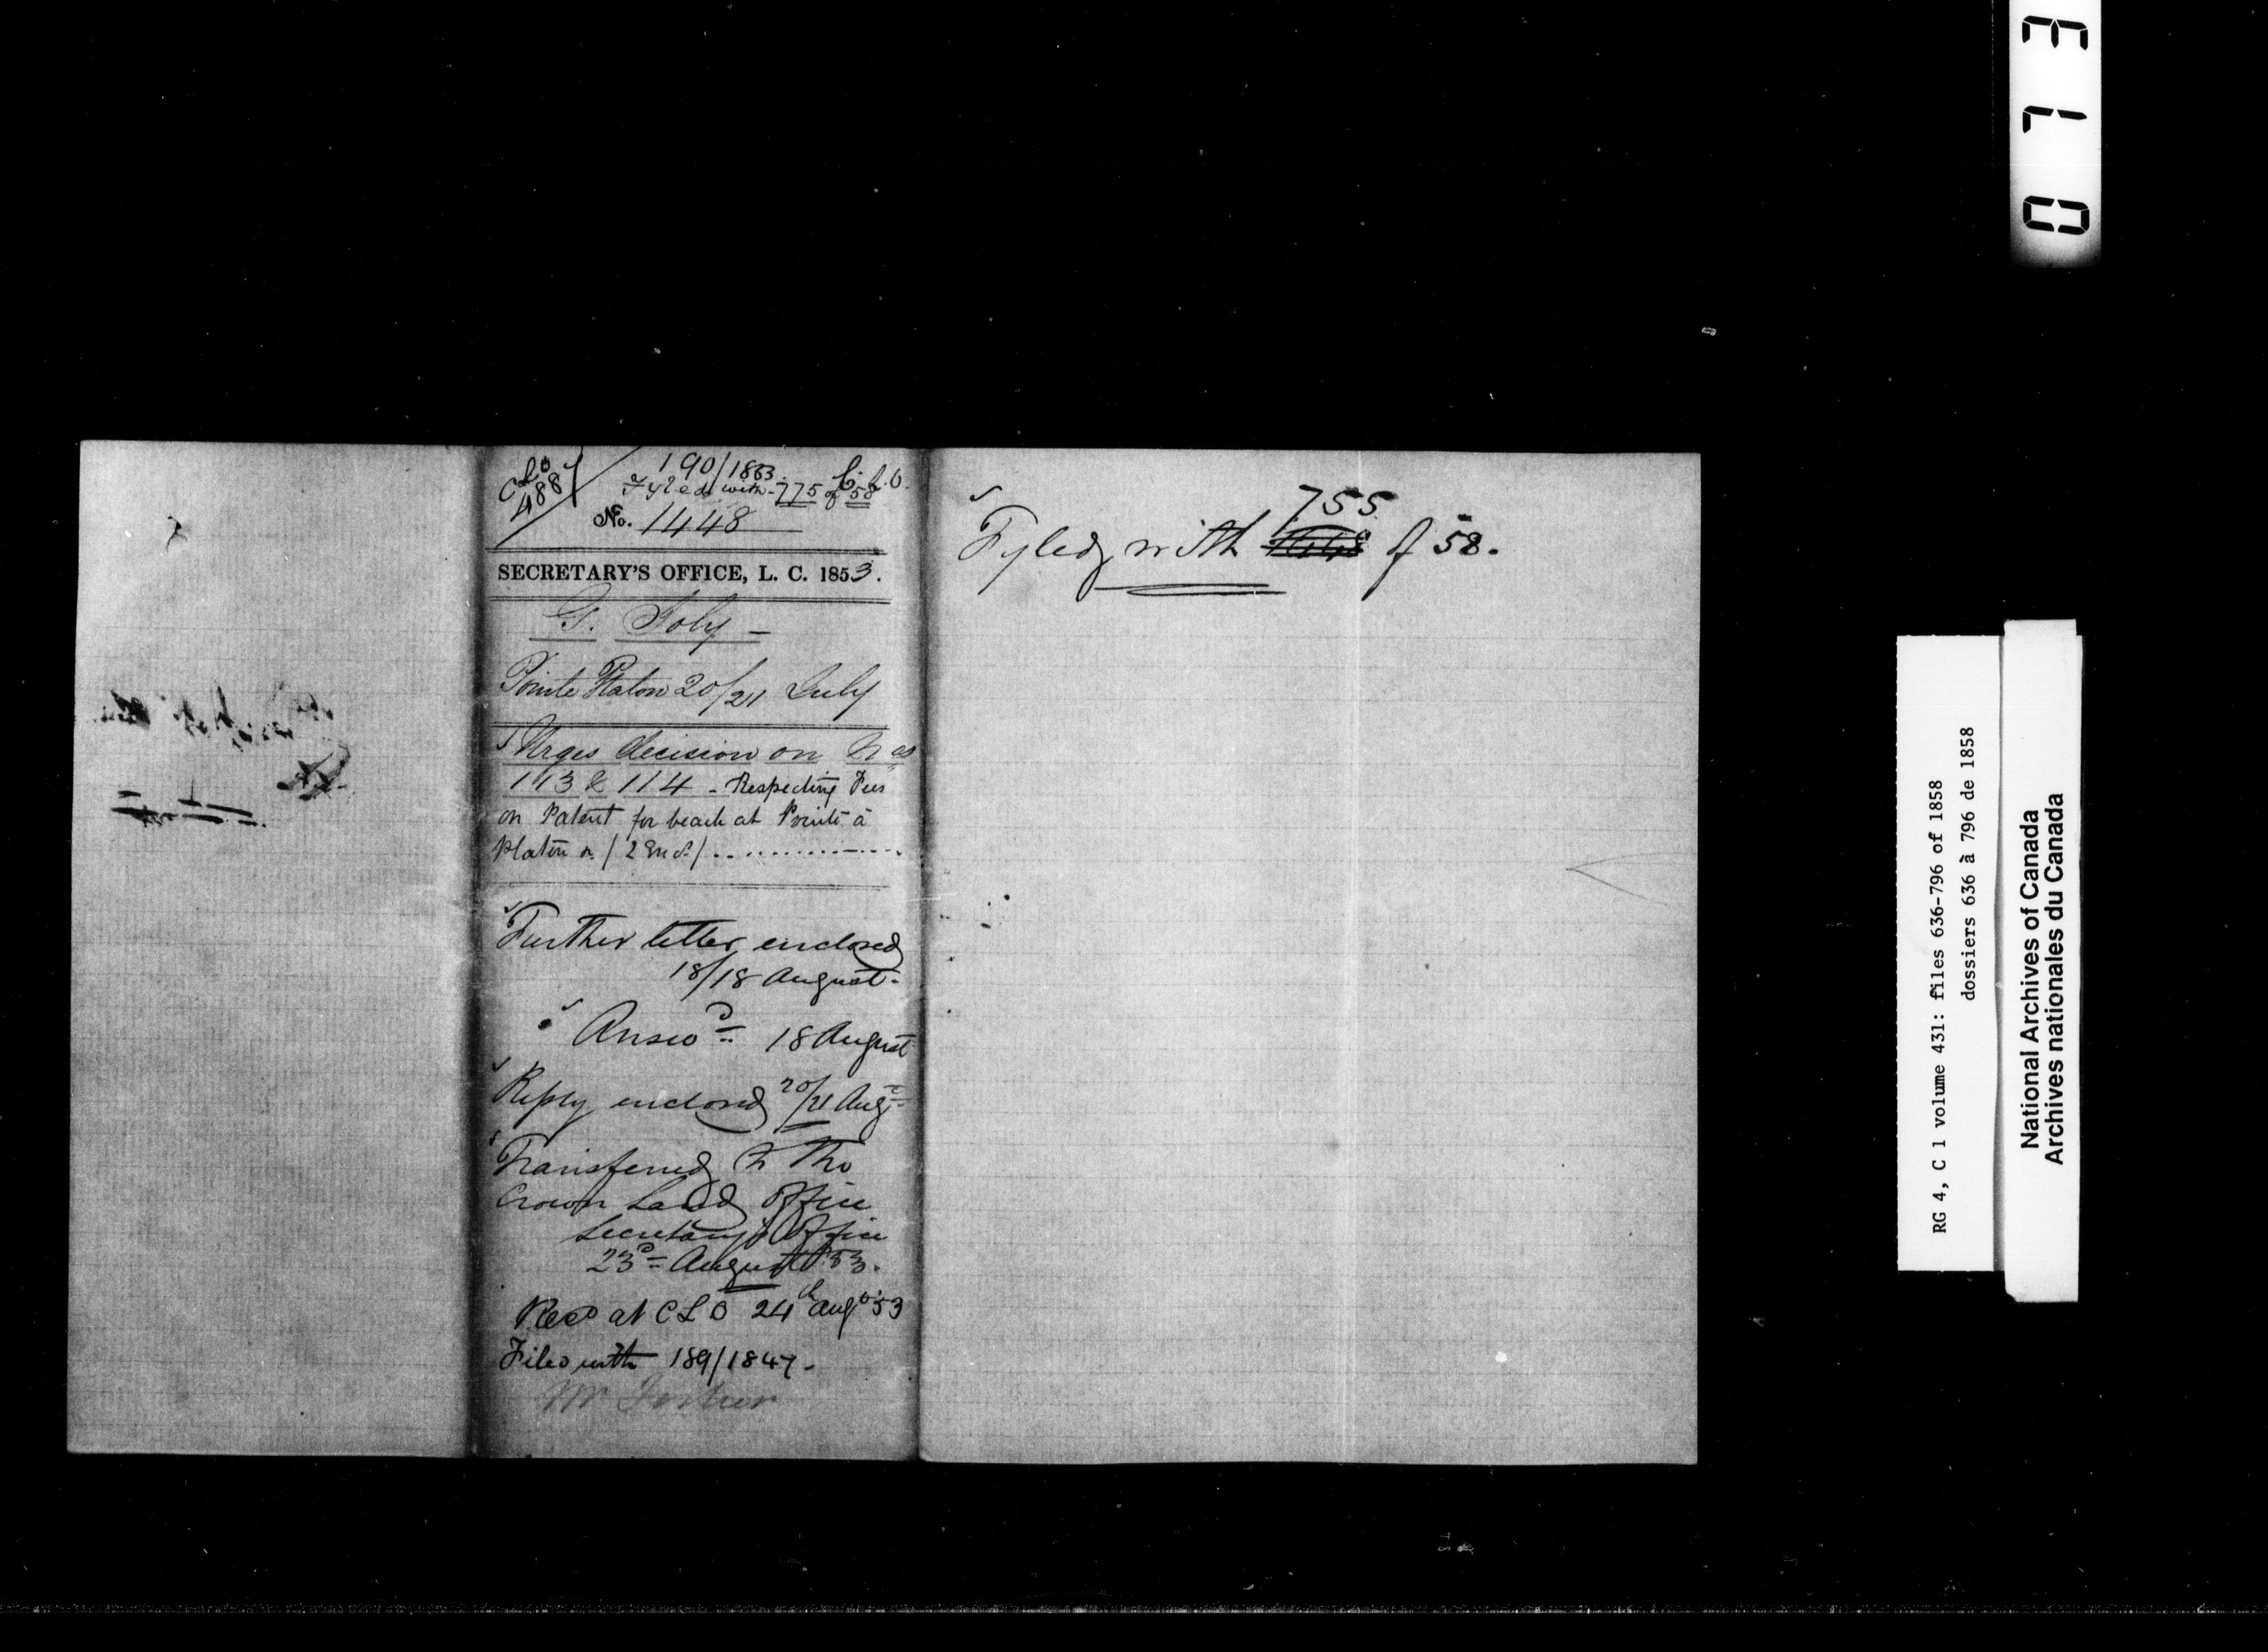 C L O
4887
190/1853. C. L. O.
Fyled with 775 of 58
No. 1448
SECRETARY'S OFFICE, L. C. 1853.
G. Joly
Pointe Platon 20/21 July
Urges decision on Nos
113 & 114 - Respecting Fees
on Patent for beach at Pointe à
Platon (2 Encl)
Further letter enclosed
18/18 August.
Answd 18 August
Reply enclosed 20/21 Augt
Transferred to the
Crown Land Office
Secretary's Office
23d August 53.
Recd at C L O 24th Augt 53
Filed with 189/1847.
Mr
755
Fyled with of 58.
0713
RG 4, C 1 volume 431: files 636-796 of 1858
dossiers 636 à 796 de 1858
National Archives of Canada
Archives nationales du Canada